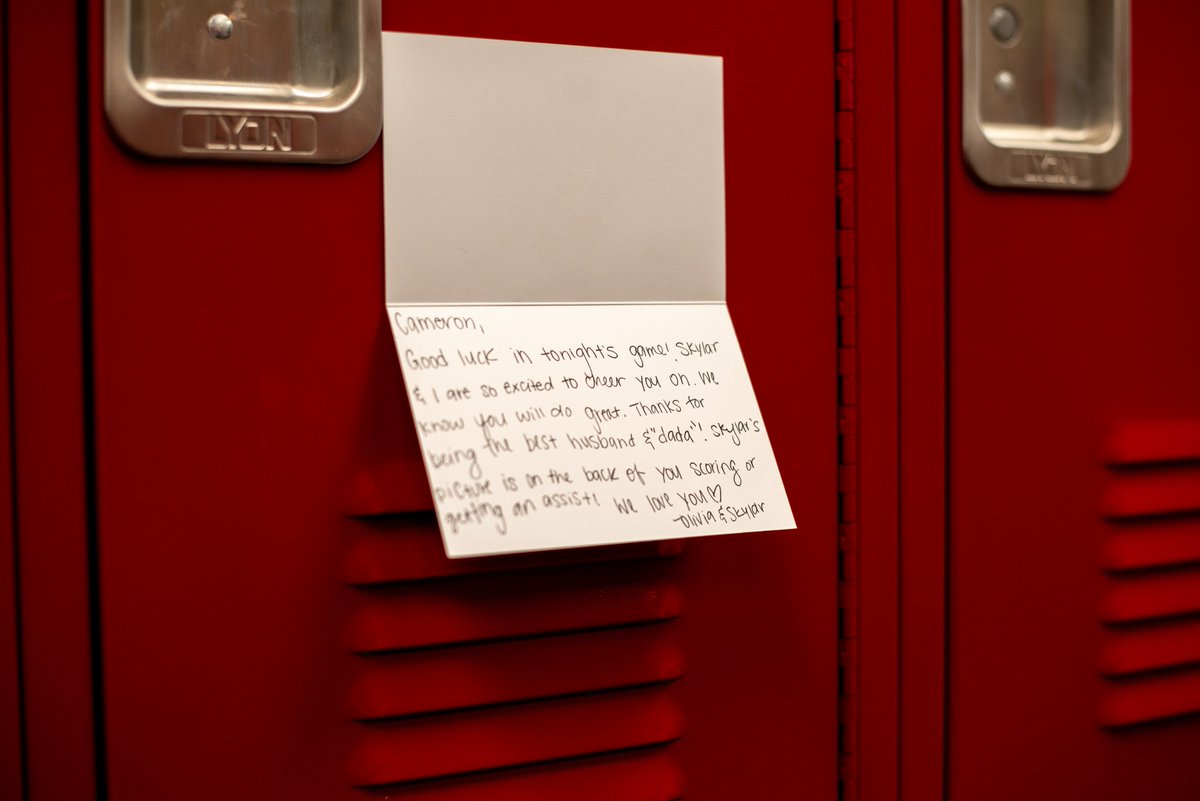 LYON
LYON
Cameron,
Good luck in tonight's game! Skylar
& I are so excited to cheer you on. We
know you will do great. Thanks for
being the best husband & "dada"! Skylar's
picture is on the back of you scoring or
getting an assist! We love you♡
-Olivia & Skylar